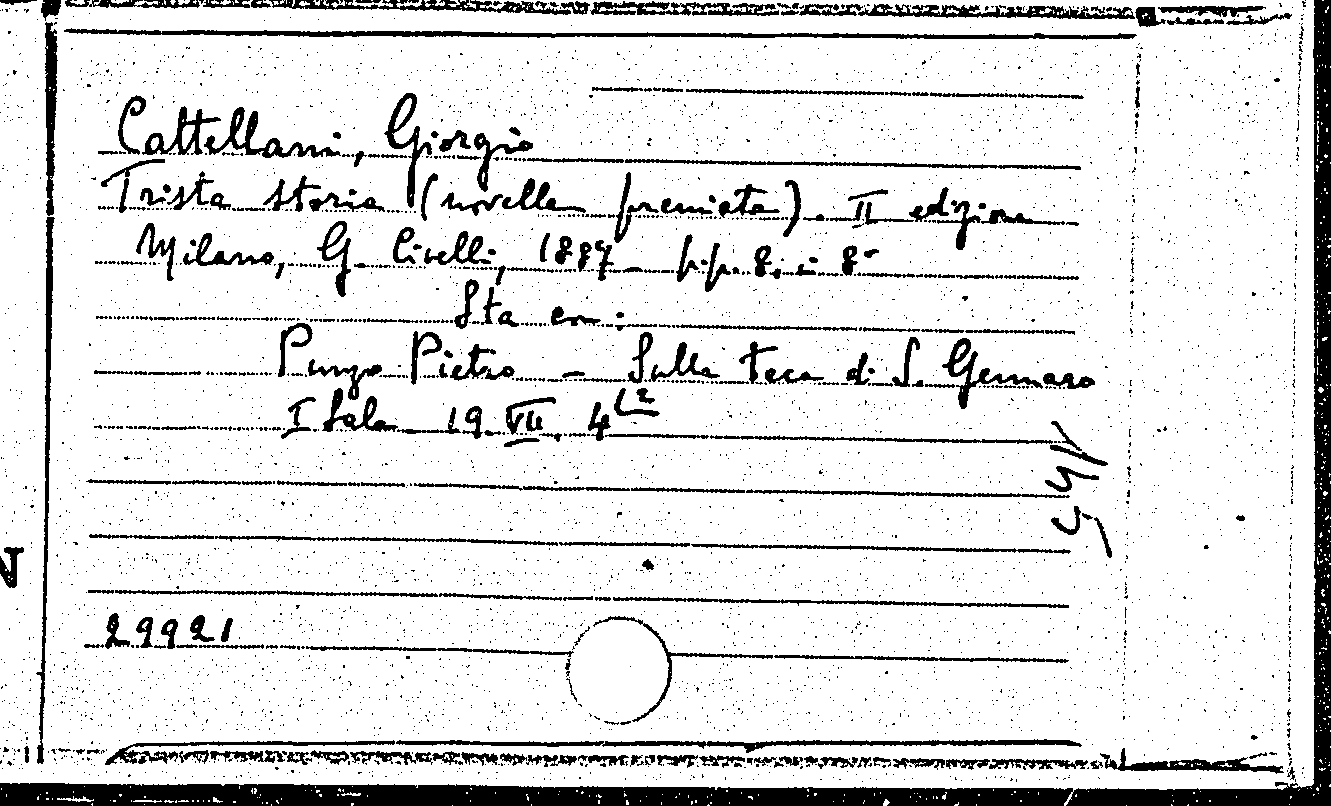 Cattellani, Giorgio
Trista storia (novella premiata). II edizione
Milano, G. Civelli, 1887 - p.p. 8, in 8°
Sta con:
Punzo Pietro - Sulla teca di S. Gennaro
I Sala - 19. VII. 4
29921